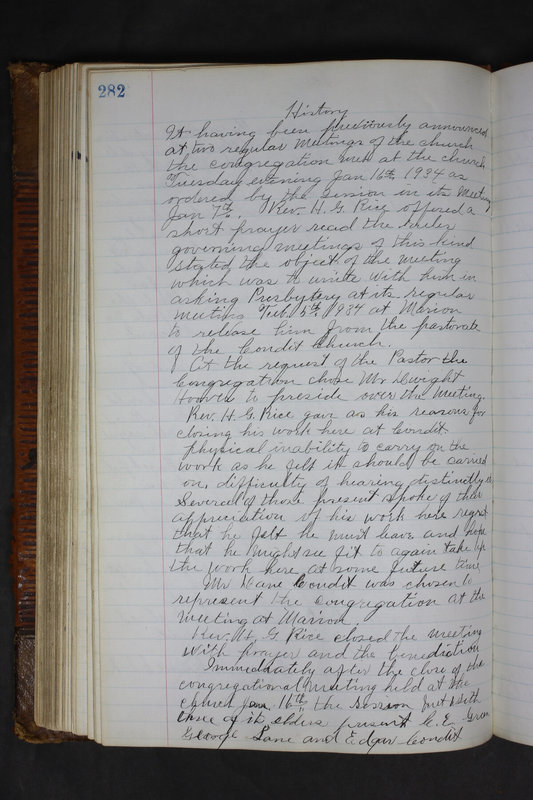 282
History
It having been previously announced
at two regular meetings of the church
the congregation met at the church
Tuesday evening Jan 16th, 1934 as
ordered by the session in its meeting
Jan 7th. Rev. H. G. Rice offered a
short prayer read the rules
governing meetings of this kind
stated the object of the meeting
which was to unite with him in
asking Presbytery at its regular
meeting Feb. 5th 1934 at Marion
to release him from the pastorate
of the Condit Church.
At the request of the Pastor the
Congregation chose Mr Dwight
Hoover to preside over the meeting.
Rev. H. G. Rice gave as his reasons for
closing his work here at Condit.
physical inability to carry on the
work as he felt it should be carried
on, difficulty of hearing distinctly
Several of those present spoke of their
appreciation of his work here regret
that he felt he must leave and hope
that he might see fit to again take up
the work here at some future time
Mr Lane Condit was chosen to
represent the congregation at the
meeting at Marion.
Rev. H. G Rice closed the meeting
with prayer and the benediction
Immediately after the close of the
congregational meeting held at the
church Jan. 16th, the session met with
three of its elders present C. E. Green
George Lane and Edgar Condit